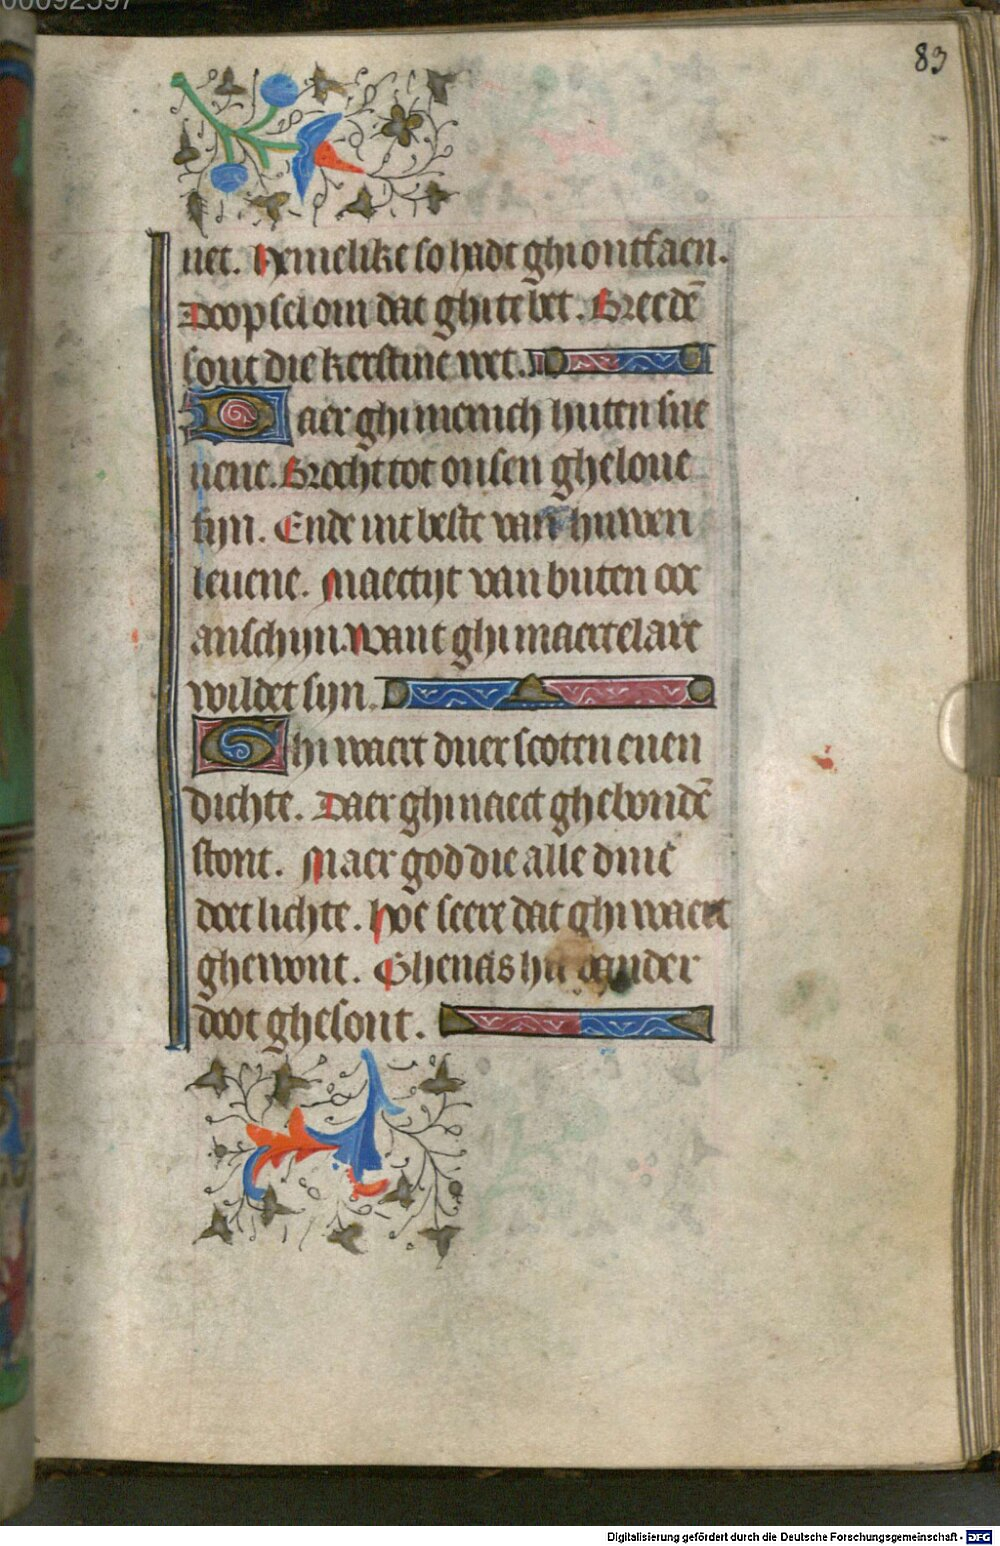 00092597
83
net. Hemelike so hadt ghi ontfaen.
Doopsel om dat ghi te bet. Breedē
sout die kerstine wet.
Daer ghi menich huten sne
uene. Brocht tot onsen gheloue
fijn. Ende int beste van huwen
leuene. Maectijt van buten oox
anschijn. Want ghi maertelare
wildet sijn.
Ghi waert duer scoten euen
dichte. Daer ghi naect ghebondē
stont. Maer god die alle dinc
doet lichte. Hoe seere dat ghi waert
ghewont. Ghenas hu vander
doot ghesont.
Digitalisierung gefördert durch die Deutsche Forschungsgemeinschaft - DFG